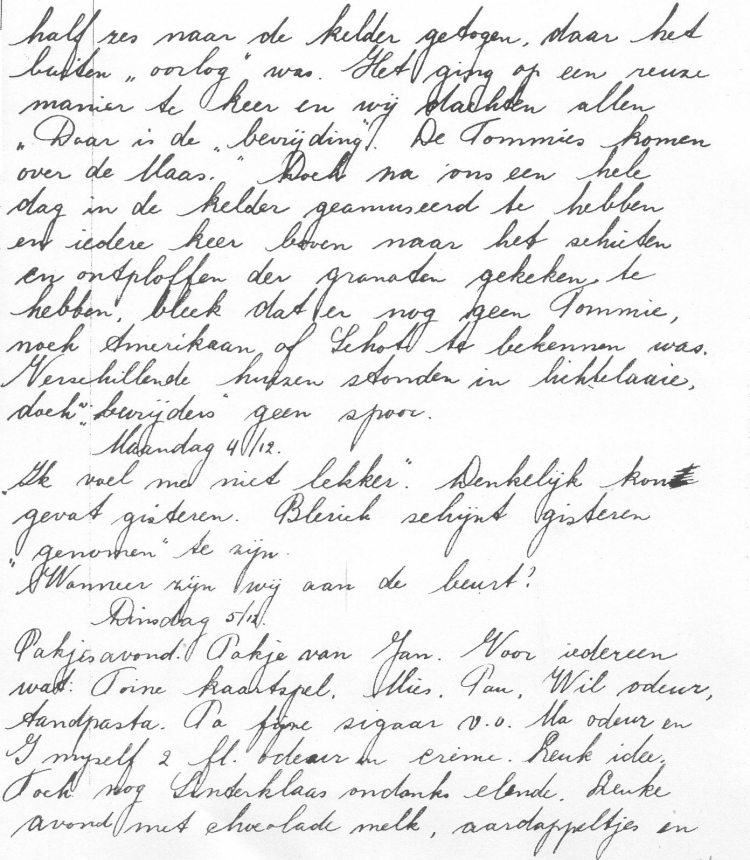 half zes naar de kelder getogen, daar het
buiten „oorlog" was. Het ging op een reuze
manier te keer en wij dachten allen
„Daar is de „bevrijding". De Tommies komen
over de Maas." Doch na ons een hele
dag in de kelder geamuseerd te hebben
en iedere keer boven naar het schieten
en ontploffen der granaten gekeken te
hebben, bleek dat er nog geen Tommie,
noch Amerikaan of Schot te bekennen was.
Verschillende huizen stonden in lichtelaaie,
doch „bevrijders" geen spoor.
Maandag 4/12.
„Ik voel me niet lekker". Denkelijk kou
gevat gisteren. Blerick schijnt gisteren
„genomen" te zijn.
Wanneer zijn wij aan de beurt?
Dinsdag 5/12.
Pakjesavond! Pakje van Jan. Voor iedereen
wat. Toine kaartspel. Mies, Pau, Wil odeur,
tandpasta. Pa fijne sigaar v.o. Ma odeur en
I myself 2 fl. odeur en crème. Leuk idee.
Toch nog Sinterklaas ondanks elende. Leuke
avond met chocolade melk, aardappeltjes en